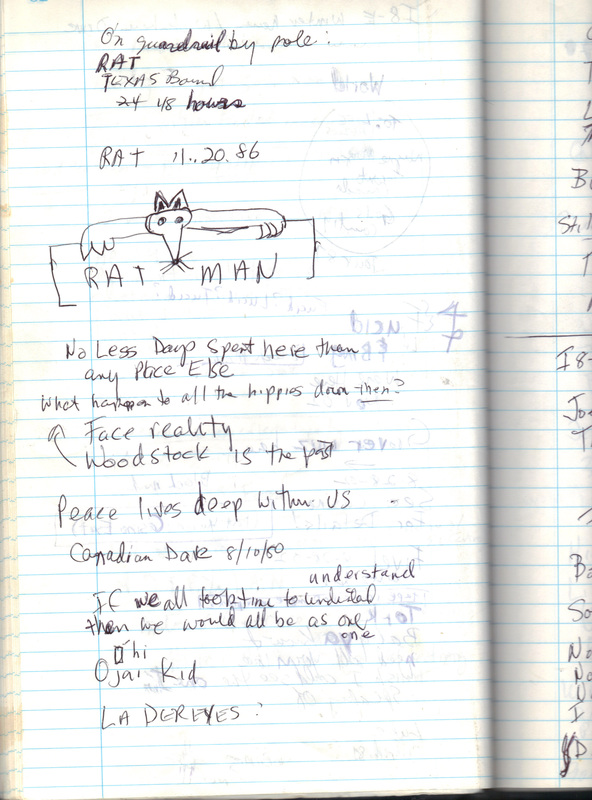 On guardrail by pole:
RAT
TEXAS Bound
24 48 hours
RAT 11.20.86
RAT MAN
No Less Days Spent here than
any Place Else
What happen to all the hippies down then?
Face reality
Woodstock is the past
Peace lives deep within us
Canadian Dave 8/10/80
understand
If we all took time to
then we would all be as one
one
hi
Ojai Kid
LA DEREYES:
I8-